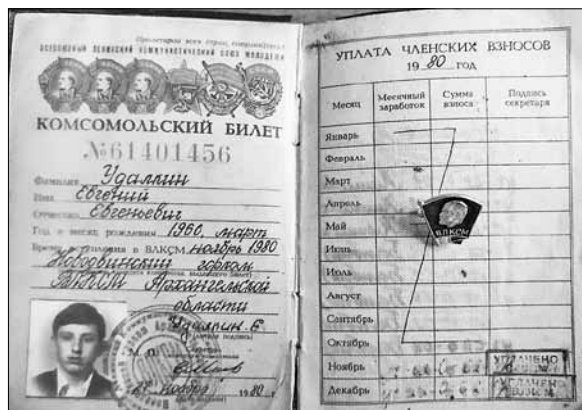 Пролетарии всех стран, соединяйтесь!
ВСЕСОЮЗНЫЙ ЛЕНИНСКИЙ КОММУНИСТИЧЕСКИЙ СОЮЗ МОЛОДЕЖИ
КОМСОМОЛЬСКИЙ БИЛЕТ
№61401456
Фамилия Удалкин
Имя Евгений
Отчество Евгеньевич
Год и месяц рождения 1960, март
Время вступления в ВЛКСМ ноябрь 1980
Новодвинский горком
ВЛКСМ Архангельской
области
Удалкин Е
М. П.
ноября 1980 г.
УПЛАТА ЧЛЕНСКИХ ВЗНОСОВ
1980 ГОД
Месяц Месячный заработок Сумма взноса Подпись секретаря
Январь
Февраль
Март
Апрель
Май
ВЛКСМ
Июнь
Июль
Август
Сентябрь
Октябрь
Ноябрь УПЛАЧЕНО
Декабрь УПЛАЧЕНО
ВЛКСМ